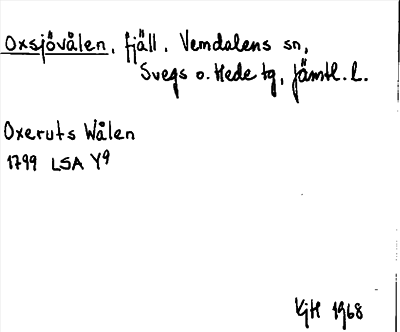 Oxsjövålen, fjäll. Vemdalens sn,
Svegs o. Hede tg, Jämtl. l.
Oxeruts Wålen
1799 LSA Y9
KjH 1968